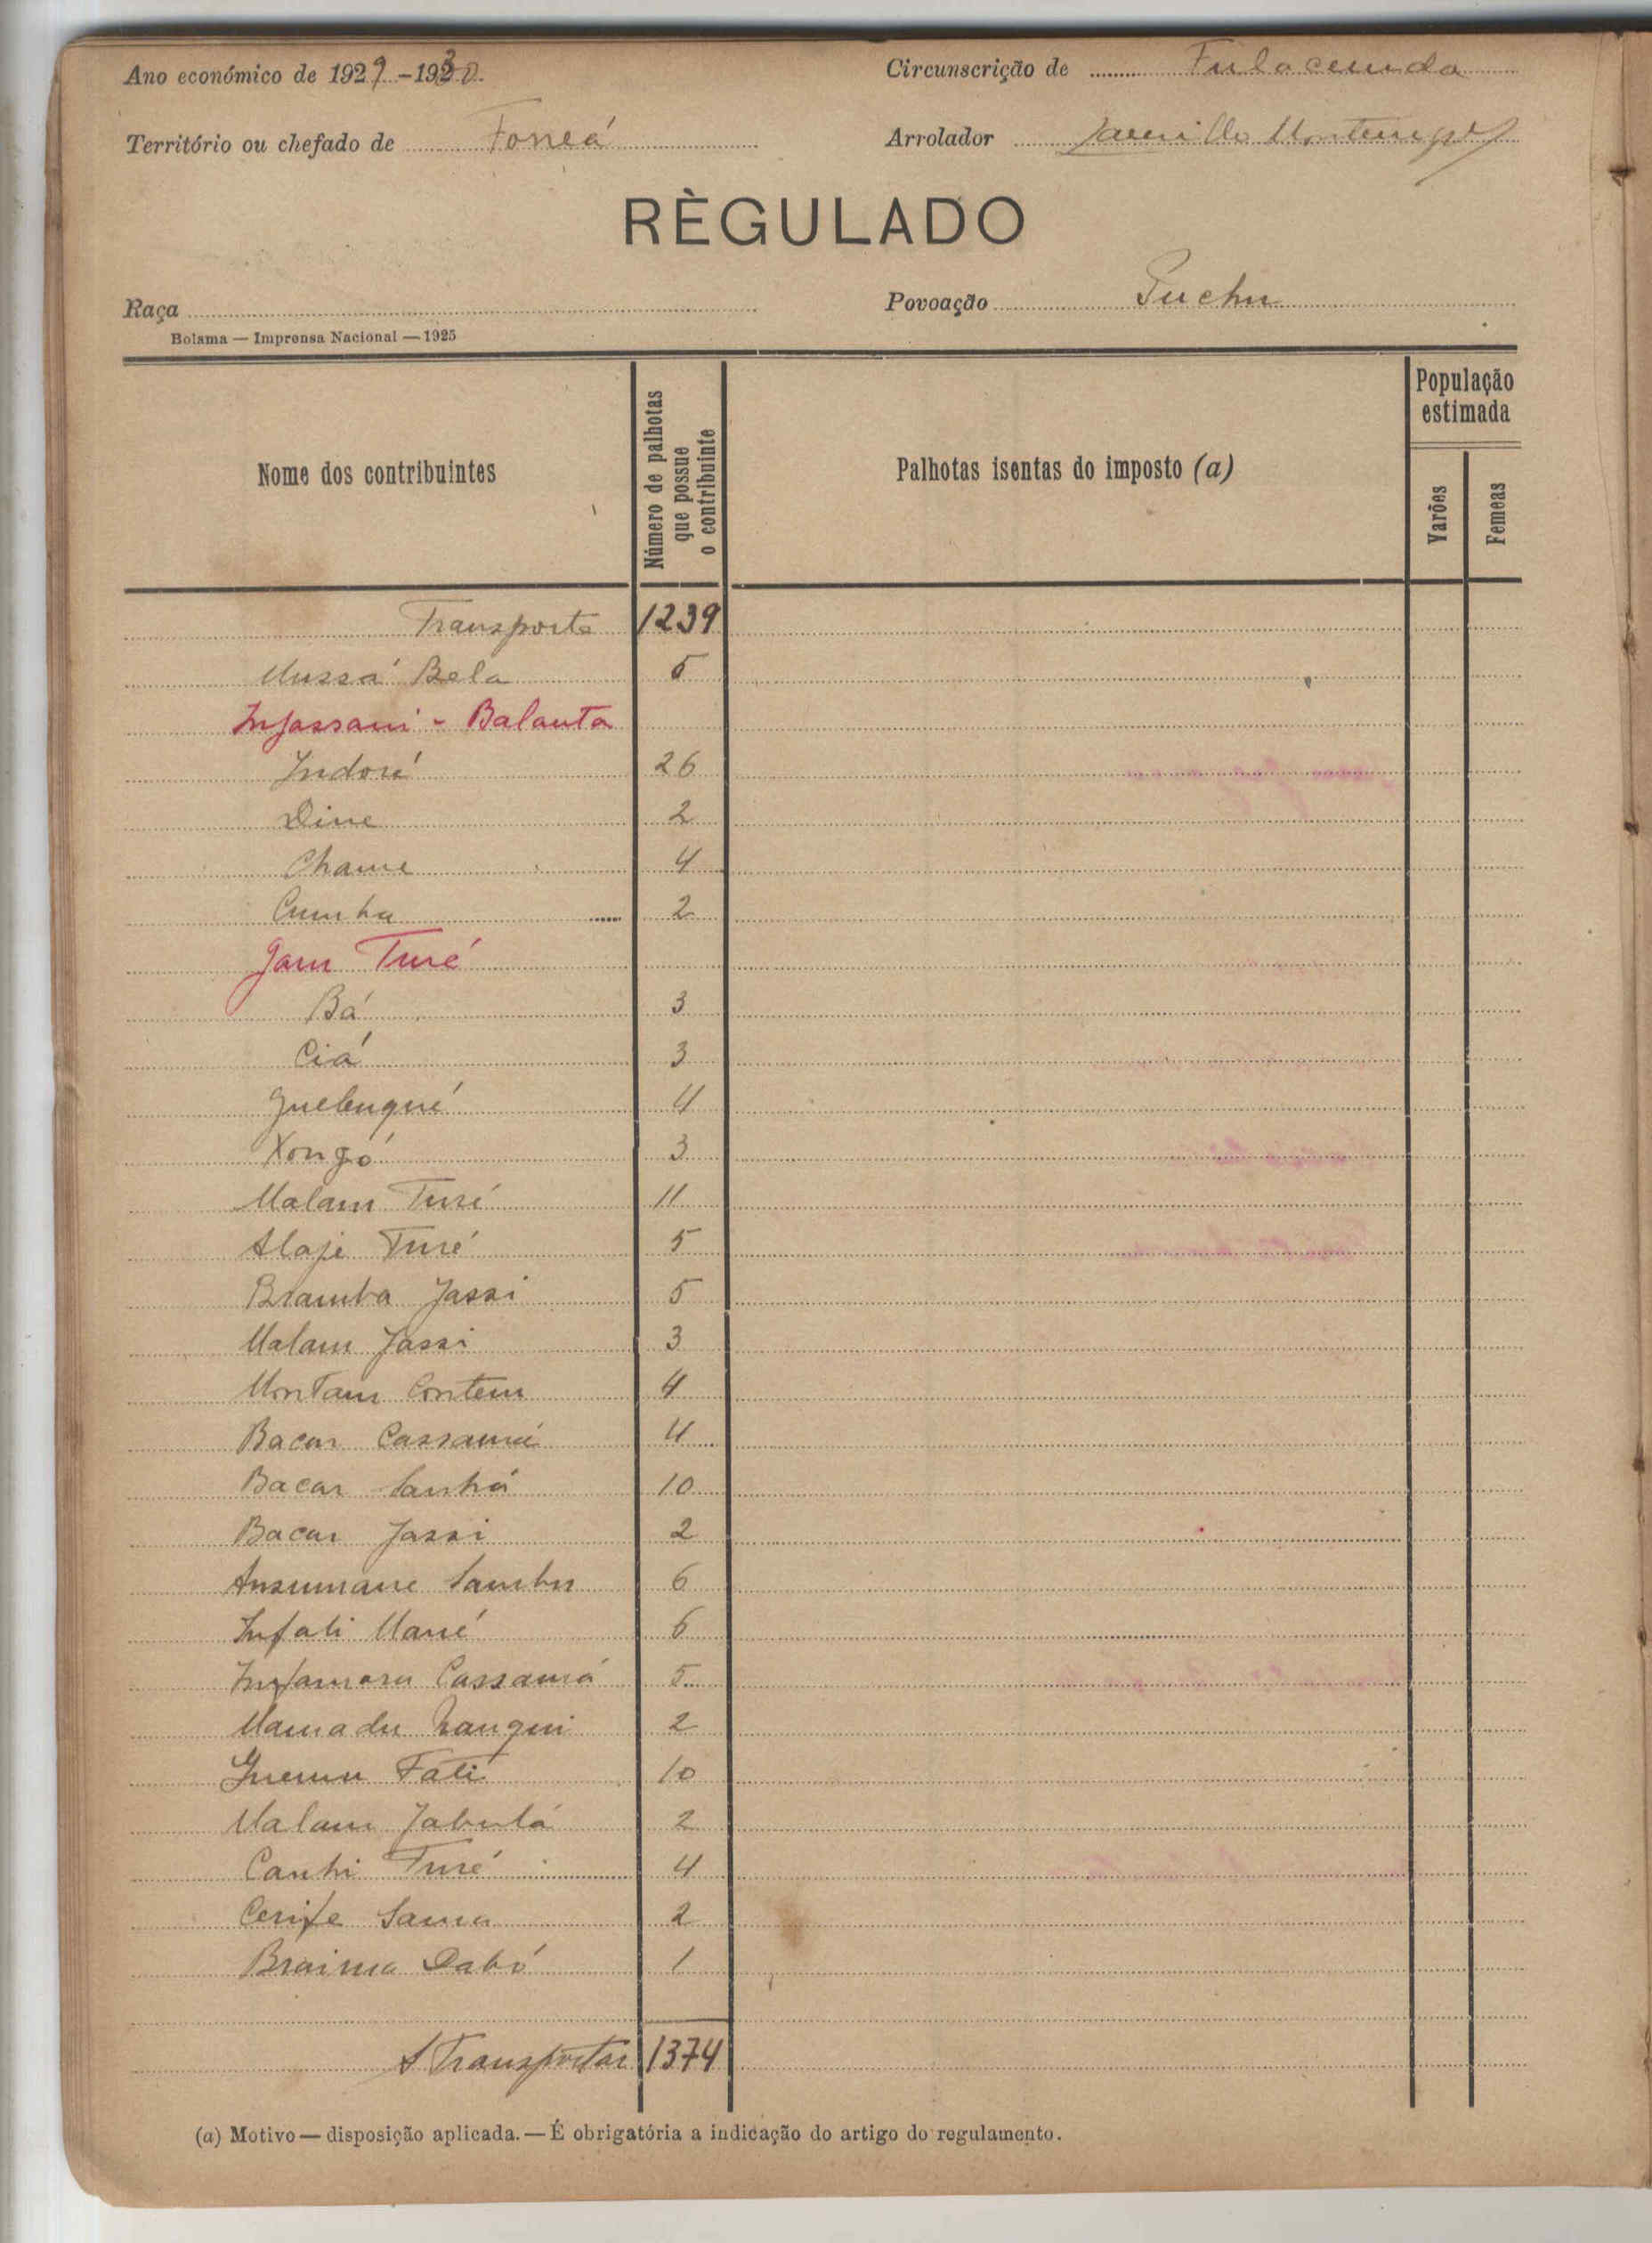 Ano económico de 1929-1930
Circunscrição de Fulacunda
Território ou chefado de Foneá
Arrolador Montenegro
RÈGULADO
Raça
Povoação Guchu
Bolama — Imprensa Nacional — 1925
Nome dos contribuintes
Número de palhotas que possue o contribuinte
Palhotas isentas do imposto (a)
População estimada
Varões
Femeas
Transporte 1239
Mussá Bela 5
Injassani - Balanta
Indoré 26
Dine 2
Chame 4
Cumba 2
Jam Turé
Bá 3
Ciá 3
Guebuqué 4
Xongó 3
Malam Turé 11
Alaje Turé 5
Bramba Jassi 5
Malam Jassi 3
Montam Contem 4
Bacar Cassamá 4
Bacar Sanhá 10
Bacar Jassi 2
Ansumane Sambu 6
Infali Mané 6
Infamara Cassamá 5
Mamadu 2
Fati 10
Malam Jabulá 2
Canhi Turé 4
Cerife Sama 2
Braima Dabó 1
A Transportar 1374
(a) Motivo — disposição aplicada. — É obrigatória a indicação do artigo do regulamento.